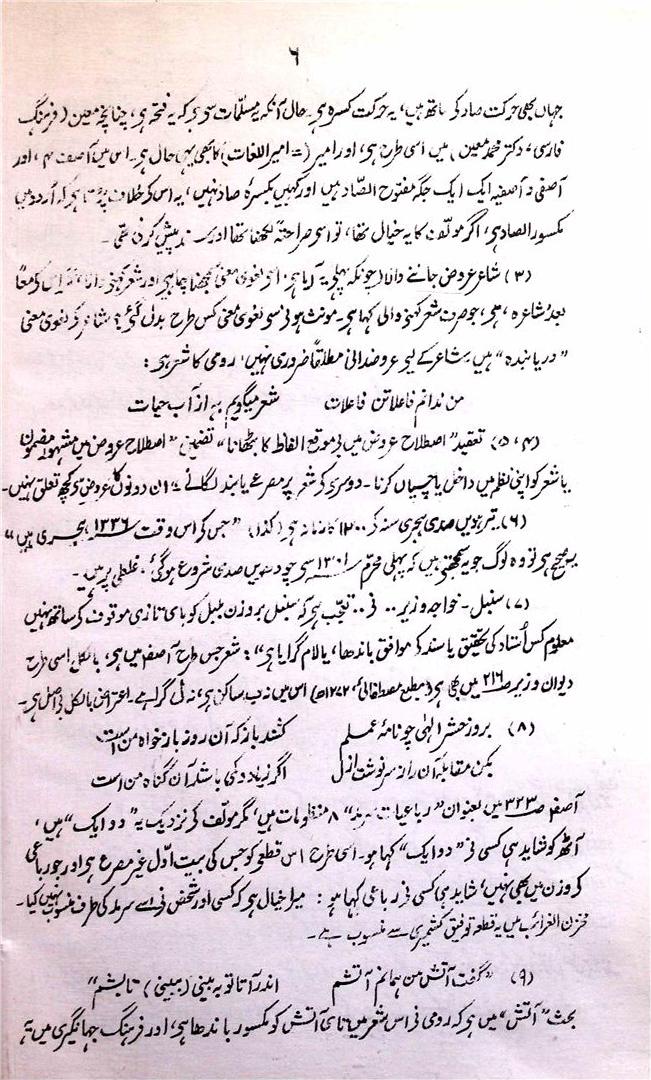 ۶
جہاں بھی حرکت صاد کی ساتھ ہیں، یہ حرکت کسرہ ہی۔ حال آنکہ یہ مسلّمات سی ہی کہ یہ فتحہ ہی، چنانچہ معین (فرہنگ
فارسی، دکتر محمد معین) میں اسی طرح ہی، اور امیر (= امیر اللغات) کا بھی یہی حال ہی۔ اس میں آصف ۴، اور
آصفی و آصفیہ ایک ایک جگہ مفتوح الصّاد ہیں اور کہیں بکسرۂ صاد نہیں، یہ اس کی خلاف ہی کہ اردو میں
مکسور الصاد ہی، اگر مولّف کا یہ خیال تھا، تو اسی صراحتہً لکھنا تھا اور سند پیش کرنی تھی۔
(۳) شاعر عروض جاننے والا (چونکہ پہلی یہ آیا ہی، لغوی معنی سمجھنا چاہیی اور شعر کہنی والا، اس کی معاً
بعد شاعرہ، ہی، جو صرف شعر کہنی والی کہا ہی۔ مونث ہونی سی لغوی معنی کس طرح بدل گئی؟ شاعر کی لغوی معنی
"دریابندہ" ہیں۔ شاعر کے لیی عروض دانی مطلقاً ضروری نہیں، رومی کا شعر ہی:
من ندانم فاعلاتن فاعلات شعر میگویم بہ از آب حیات
(۴، ۵) تعقید "اصطلاح عروض میں بی موقع الفاظ کا بٹھانا" تضمین "اصطلاح عروض میں مشہور مضمون
یا شعر کو اپنی نظم میں داخل یا چسپاں کرنا۔ دوسری کی شعر پر مصرعے یا بند لگانے" ان دونوں کا عروض سی کچھ تعلق نہیں۔
(۶) تیرہویں صدی ہجری سنہ کی ۱۲۰۰ کا زمانہ ہی (کذا) "جس کی اس وقت ۱۳۳۶ ہجری ہیں"
یہ صحیح ہی تو وہ لوگ جو یہ سمجھتی ہیں کہ پہلی محرّم ۱۳۰۱ سی چودہویں صدی شروع ہوگئی، غلطی پر ہیں۔
(۷) سنبل۔ خواجہ وزیر .. نی .. تعجّب ہی کہ سنبل بر وزن بلبل کو بای تازی موقوف کی ساتھ نہیں
معلوم کس اُستاد کی تحقیق یا سند کی موافق باندھا، یا لام گرایا ہی": شعر جس طرح آصفہ میں ہی، بالکل اسی طرح
دیوان وزیر ص ۲۱۶ میں بھی ہی (مطبع مصطفائی ۱۲۷۲ھ) اس میں نہ ب ساکن ہی، نہ ل گرا ہی۔ اعتراض بالکل بی اصل ہی۔
(۸) بروز حشر الٰہی چو نامۂ عملم کنند باز کہ آن روز باز خواہ من است
بکن مقابلۂ آن را ز سرنوشت ازل اگر زیاد و کمی باشد آن گناہ من است
آصفہ ص ۳۲۳ میں بعنوان "رباعیات سرمد" ۸ منظومات ہیں، مگر مولّف کی نزدیک یہ "دو ایک" ہیں،
آٹھ کو شاید ہی کسی نی "دو ایک" کہا ہو۔ اسی طرح اس قطعی کو جس کی بیت اوّل غیر مصرع ہی اور جو رباعی
کی وزن میں بھی نہیں، شاید ہی کسی نی رباعی کہا ہو: میرا خیال ہی کہ کسی اور شخص نی اسے سرمد کی طرف منسوب نہیں کیا۔
مخزن الغرائب میں یہ قطعہ توفیق کشمیری سے منسوب ہے۔
(۹) "گفت آتش من ہمانم آتشم اندر آ تا تو بہ بینی (ببینی) تابشم"
بحث "آتش" میں ہی کہ رومی نی اس شعر میں تای آتش کو مکسور باندھا ہی، اور فرہنگ جہانگیری میں تہ